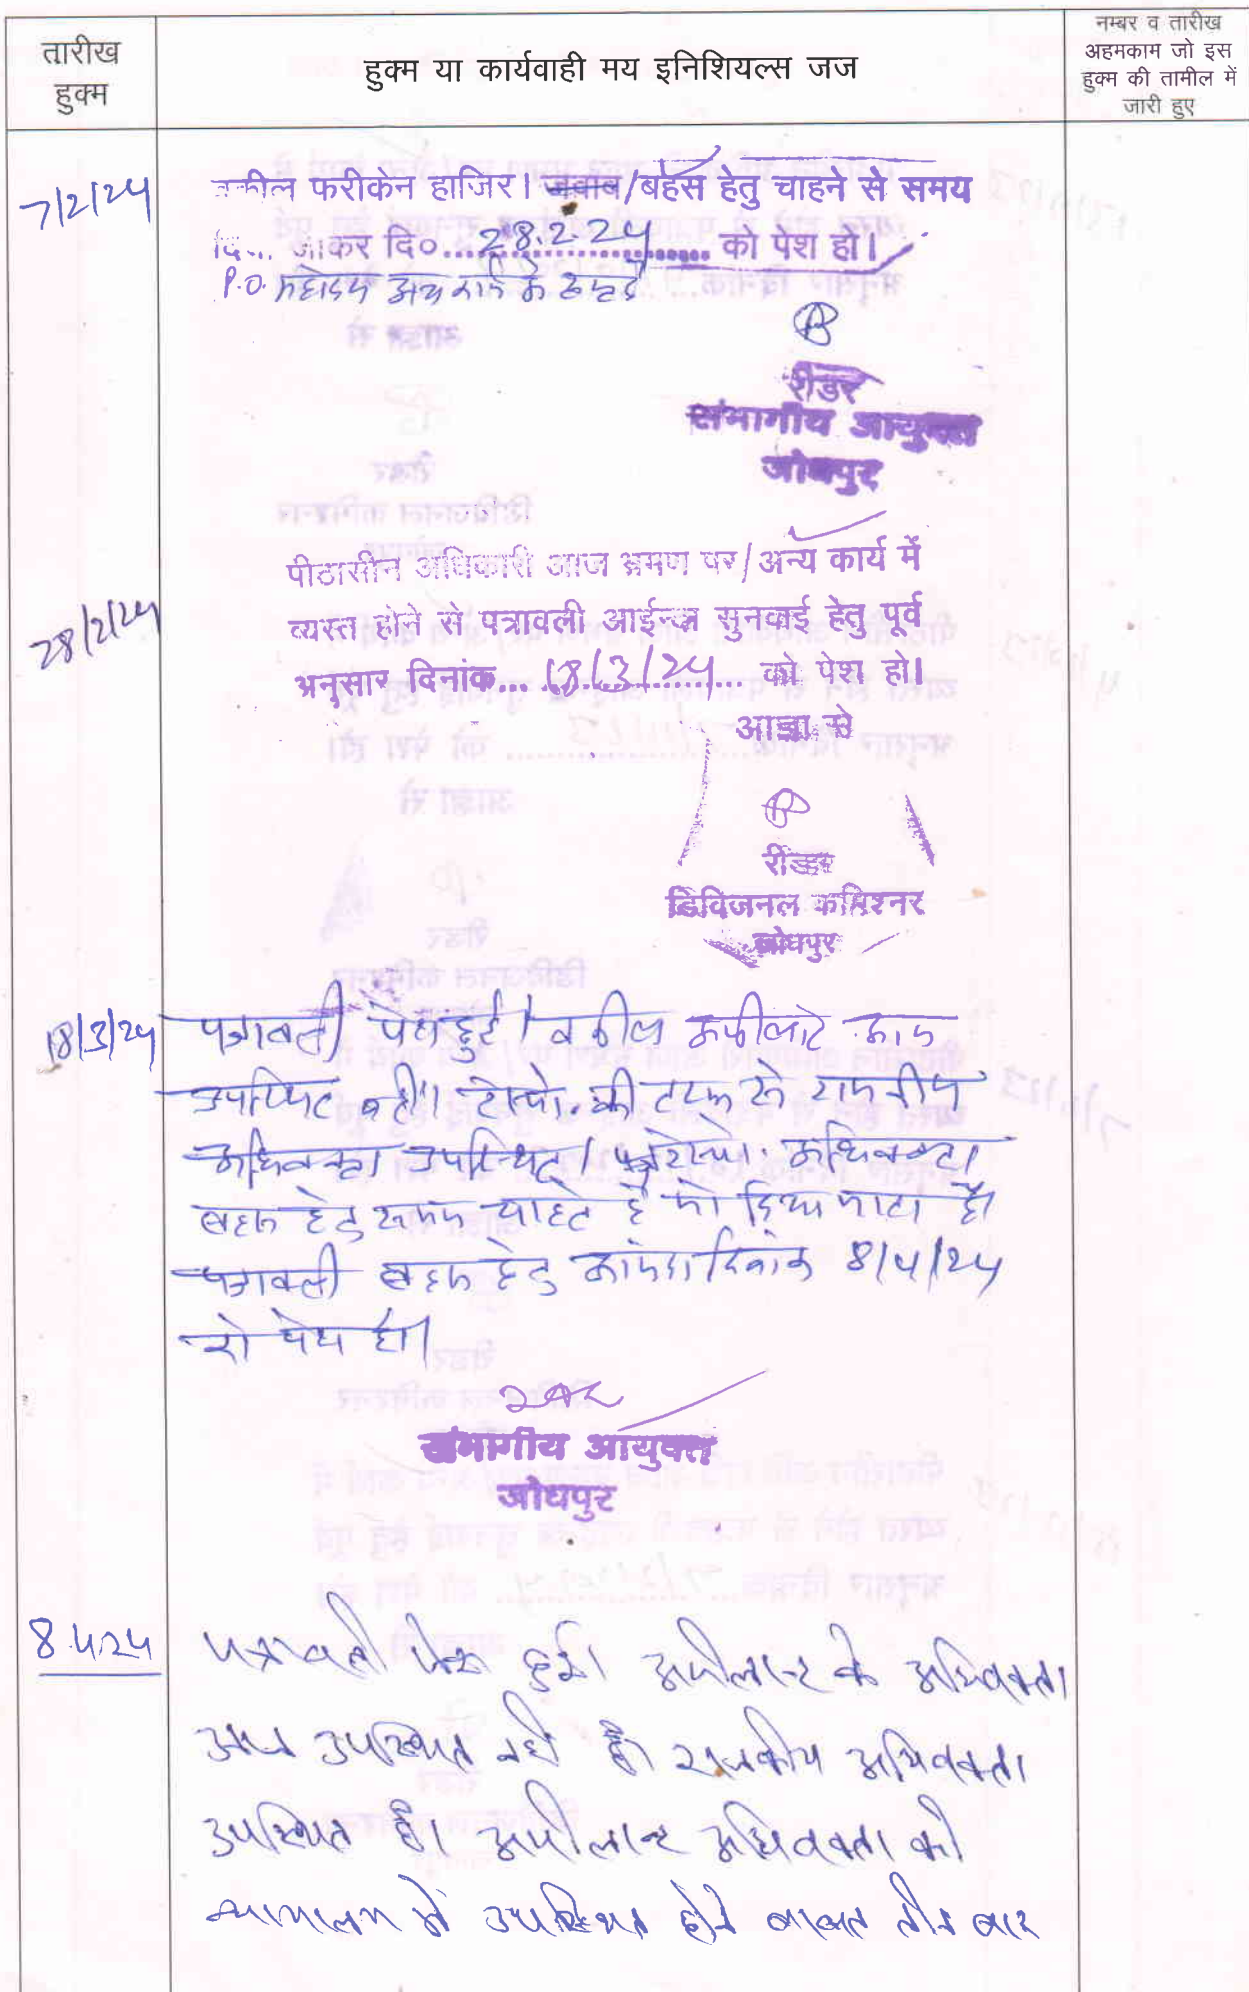 तारीख
हुक्म
हुक्म या कार्यवाही मय इनिशियल्स जज
नम्बर व तारीख
अहमकाम जो इस
हुक्म की तामील में
जारी हुए
7/2/24
वकील फरीकेन हाजिर। जवाब/बहस हेतु चाहने से समय
दि... जाकर दि० 28.2.24 को पेश हो।
P.O. महोदय अन्य कार्य में व्यस्त
रीडर
संभागीय आयुक्त
जोधपुर
28/2/24
पीठासीन अधिकारी आज भ्रमण पर/अन्य कार्य में
व्यस्त होने से पत्रावली आईन्दा सुनवाई हेतु पूर्व
अनुसार दिनांक... 18/3/24 ... को पेश हो।
आज्ञा से
रीडर
डिविजनल कमिश्नर
जोधपुर
18/3/24
पत्रावली पेश हुई। वकील अपीलांट आज
उपस्थित नहीं। रेस्पो. की तरफ से राजकीय
अधिवक्ता उपस्थित। रेस्पो. अधिवक्ता
बहस हेतु समय चाहते है जो दिया जाता है।
पत्रावली बहस हेतु आईन्दा दिनांक 8/4/24
को पेश हो।
संभागीय आयुक्त
जोधपुर
8.4.24
पत्रावली पेश हुई। अपीलान्ट के अधिवक्ता
आज उपस्थित नहीं है। राजकीय अधिवक्ता
उपस्थित है। अपीलान्ट अधिवक्ता को
न्यायालय में उपस्थित होने बाबत तीन बार